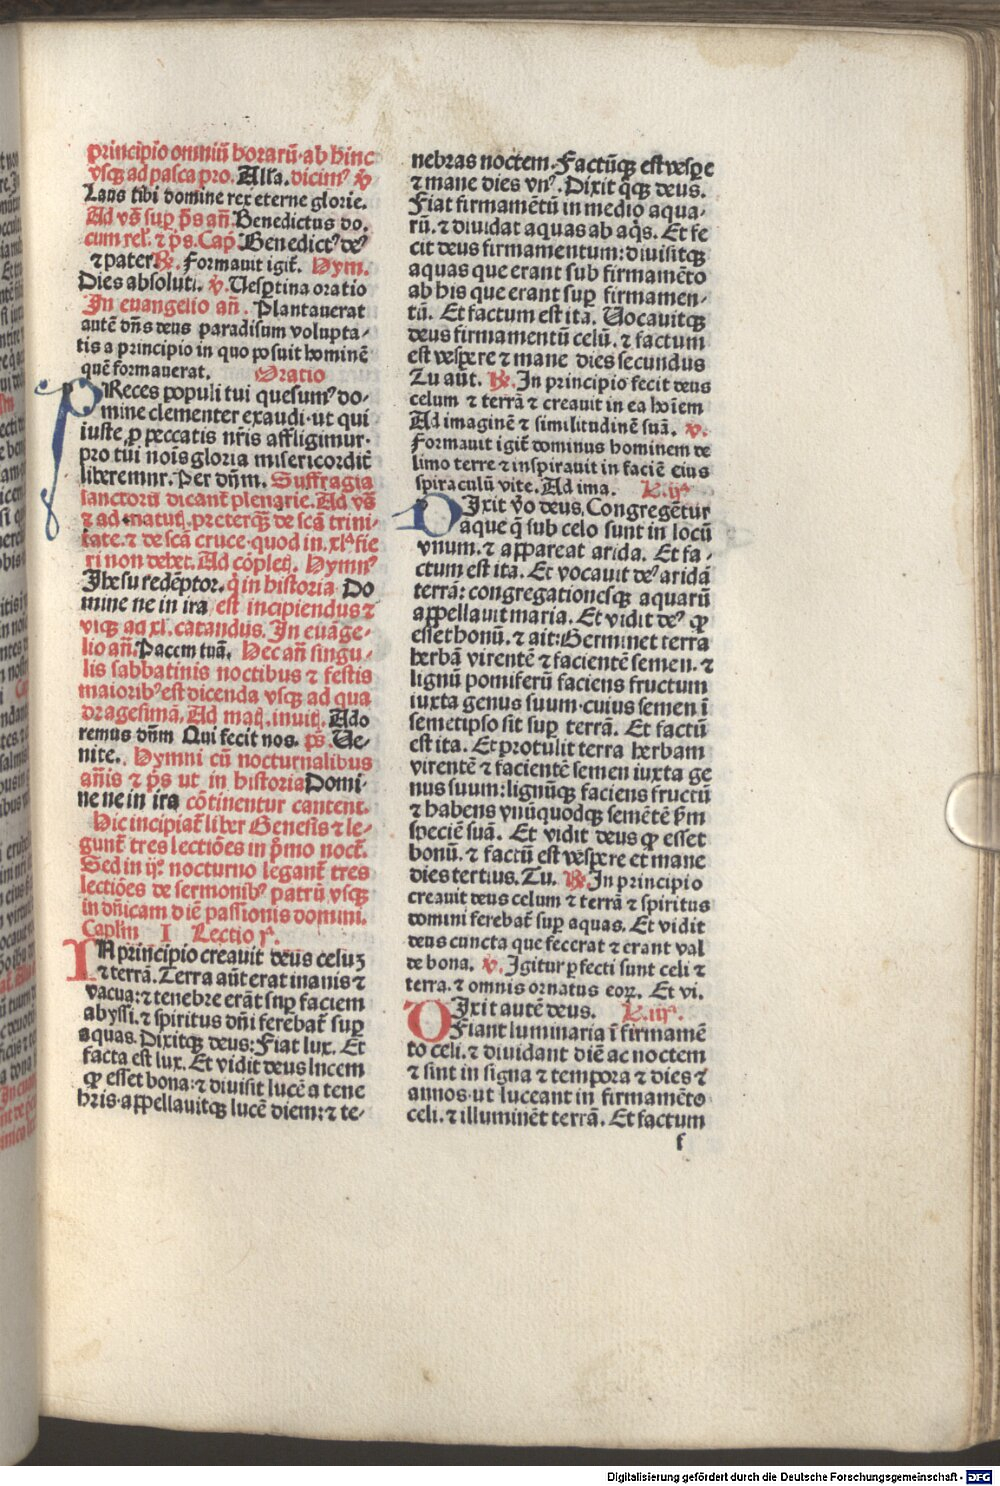 principio omniū horarū·ab hinc
vsqꝫ ad pasca pro. Alla. dicim⁹ ℣
Laus tibi domine rex eterne glorie.
Ad vs̄ sup ps̄ an̄. Benedictus do.
cum rel̓. ⁊ ps̄. Cap̄ Benedict⁹ de⁹
⁊ pater ℟. Formauit igit̄. Hym.
Dies absoluti. ℣. Uesp̄tina oratio
In euangelio an̄. Plantauerat
autē dn̄s deus paradisum volupta-
tis a principio in quo posuit hominē
quē formauerat. Oratio
PReces populi tui quesum⁹ do-
mine clementer exaudi·ut qui
iuste ꝓ peccatis nr̄is affligimur·
pro tui nois̄ gloria misericordit̄
liberemur. Per dn̄m. Suffragia
sanctorū dicant̄ plenarie. Ad vs̄
⁊ ad matut̄. preterqꝫ de scā trini-
tate. ⁊ de scā cruce·quod in. xlᵃ fie
ri non debet. Ad cōplet̄. Hymn⁹
Jhesu redēptor. q̄ in historia Do
mine ne in ira est incipiendus ⁊
vsqꝫ ad xl. cātandus. In euāge-
lio an̄. Pacem tuā. Hec an̄ singu-
lis sabbatinis noctibus ⁊ festis
maiorib⁹ est dicenda vsqꝫ ad qua
dragesimā. Ad mat̄. inuit̄. Ado
remus dn̄m Qui fecit nos. ps̄. Ue-
nite. Hymni cū nocturnalibus
an̄is ⁊ ps̄ ut in historia Domi-
ne ne in ira cōtinentur cantent̄.
Hic incipiat̄ liber Genesis ⁊ le-
gunt̄ tres lectiōes in p̄mo noct̄.
Sed in ijᵒ. nocturno legant̄ tres
lectiōes de sermonib⁹ patrū vsqꝫ
in dn̄icam diē passionis domini.
Caplm I Lectio jᵃ.
IN principio creauit deus celuꝫ
⁊ terrā. Terra aūt erat inanis ⁊
vacua: ⁊ tenebre erāt sup faciem
abyssi. ⁊ spiritus dn̄i ferebat̄ sup
aquas. Dixitqꝫ deus: Fiat lux. Et
facta est lux. Et vidit deus lucem
ꝙ esset bona: ⁊ diuisit lucē a tene
bris·appellauitqꝫ lucē diem: ⁊ te-
nebras noctem. Factūqꝫ est vesp̄e
⁊ mane dies vn⁹. Dixit qꝫ deus.
Fiat firmamētū in medio aqua-
rū. ⁊ diuidat aquas ab aqs̄. Et fe
cit deus firmamentum: diuisitqꝫ
aquas que erant sub firmamēto
ab his que erant sup firmamen-
tū. Et factum est itā. Uocauitqꝫ
deus firmamentū celū. ⁊ factum
est vespere ⁊ mane dies secundus
Tu aūt. ℟. In principio fecit deus
celum ⁊ terrā ⁊ creauit in ea hoīem
Ad imaginē ⁊ similitudinē suā. ℣.
Formauit igit̄ dominus hominem de
limo terre ⁊ inspirauit in faciē eius
spiraculū vite. Ad ima. L. ijᵃ
DIxit v̄o deus. Congregētur
aque q̄ sub celo sunt in locū
vnum. ⁊ appareat arida. Et fa-
ctum est ita. Et vocauit de⁹ aridā
terrā: congregationesqꝫ aquarū
appellauit maria. Et vidit de⁹ ꝙ
esset bonū. ⁊ ait: Germinet terra
herbā virentē ⁊ facientē semen. ⁊
lignū pomiferū faciens fructum
iuxta genus suum·cuius semen ī
semetipso sit sup terrā. Et factū
est ita. Et protulit terra herbam
virentē ⁊ facientē semen iuxta ge
nus suum: lignūqꝫ faciens fructū
⁊ habens vnūquodqꝫ semētē ẜm
speciē suā. Et vidit deus ꝙ esset
bonū. ⁊ factū est vespere et mane
dies tertius. Tu. ℟. In principio
creauit deus celum ⁊ terrā ⁊ spiritus
domini ferebat̄ sup aquas. Et vidit
deus cuncta que fecerat ⁊ erant val
de bona. ℣. Igitur ꝑfecti sunt celi ⁊
terra. ⁊ omnis ornatus eoꝝ. Et vi.
DIxit autē deus. L. iijᵃ.
Fiant luminaria ī firmamē
to celi. ⁊ diuidant diē ac noctem
⁊ sint in signa ⁊ tempora ⁊ dies ⁊
annos·ut luceant in firmamēto
celi. ⁊ illuminēt terrā. Et factum
f
Digitalisierung gefördert durch die Deutsche Forschungsgemeinschaft - DFG